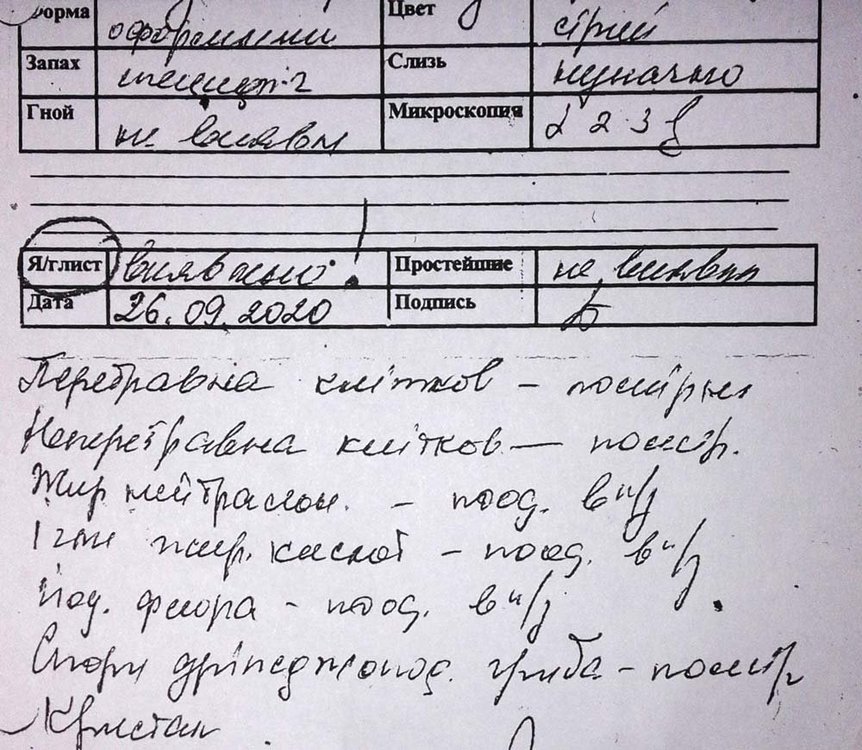 Форма оформлений Цвет сірий
Запах специфіч Слизь незначно
Гной не виявлен Микроскопия 1 2 3
Я/глист виявлено! Простейшие не виявлен
Дата 26.09.2020 Подпись
Перетравна клітков - помірна
Неперетравна клітков - помір.
Жир нейтральн. - поод. в п/з
жир. кислот - поод. в п/з
Йод. флора - поод. в п/з
Спори дріжджопод. гриба - помір
Кристал